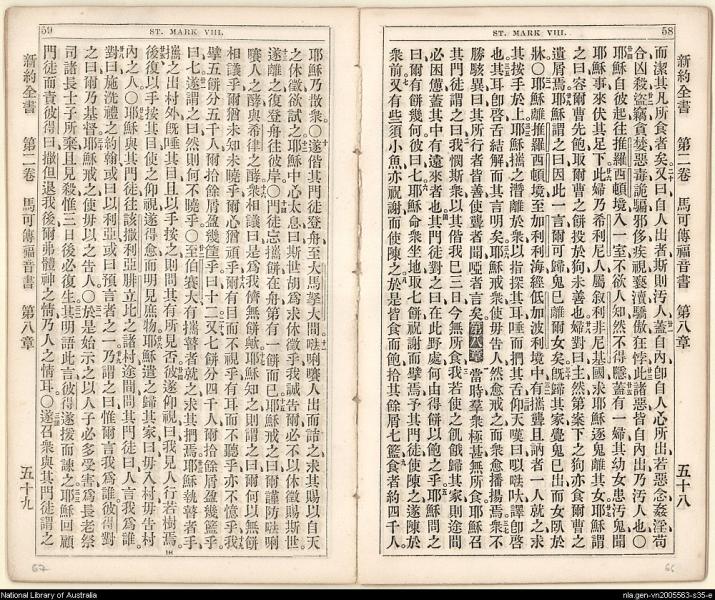 58
ST. MARK VIII.
新約全書 第二卷 馬可傳福音書 第八章 五十八
而潔其凡所食者矣又曰自人出者斯則污人蓋自內卽自人心所出若惡念姦淫苟
合凶殺盜竊貪婪惡毒詭騙邪侈疾視褻瀆驕傲狂悖此諸惡皆自內出乃污人也〇
耶穌自彼起往推羅西頓境入一室不欲人知然不得隱蓋有一婦其幼女患污鬼聞
耶穌事來伏其足下此婦乃希利尼人屬叙利非尼基國求耶穌逐鬼離其女耶穌謂
之曰容爾曹先飽取爾曹之餅投於狗未善也婦對曰主然第案下之狗亦食爾曹之
遺屑焉耶穌謂之曰因此一言爾可歸鬼已離爾女矣旣歸其家覺鬼已出而女臥於
牀〇耶穌離推羅西頓境至加利利海經低加波利境中有攜聾且訥者一人就之求
其按手於上耶穌攜之潛離於衆以指探其耳唾而捫其舌仰天嘆曰㕽𠺕吠譯卽啓
也其耳卽啓舌結解而其言明矣耶穌戒衆使毋告人然愈戒之而衆愈播揚焉衆不
勝駭異曰其所行者皆善使聾者聞啞者言矣第八章 當時羣衆極甚無所食耶穌召
其門徒謂之曰我憫斯衆以其偕我已三日今無所食我若使之飢餓歸其家則途間
必困憊蓋其中有遠來者也其門徒對之曰在此野處何由得餅以飽之乎耶穌問之
曰爾有餅幾何彼曰七耶穌命衆坐地取七餅祝謝而擘焉予其門徒使陳之遂陳於
衆前又有些須小魚亦祝謝而使陳之於是皆食而飽拾其餘屑七籃食者約四千人
59
ST. MARK VIII.
耶穌乃散衆〇遂偕其門徒登舟至大馬拏大𠵽唎㘔人出而詰之求其賜以自天
之休徵欲試之耶穌中心太息曰斯世胡爲求休徵乎我誠告爾必不以休徵賜斯世
遂離之復登舟往彼岸〇門徒忘攜餅在舟第有一餅而已耶穌戒之曰爾謹防𠵽唎
㘔人之酵與希律之酵衆相議曰是爲我儕無餅歟耶穌知之則謂之曰爾何以無餅
相議乎爾猶未知未曉乎爾心猶頑乎爾有目而不視乎有耳而不聽乎亦不憶乎我
擘五餅分五千人爾拾餘屑盈幾筐乎曰十二又七餅分四千人爾拾餘屑盈幾籃乎
曰七遂謂之曰然則何不曉乎〇至伯賽大有攜瞽者就之求其捫焉耶穌執瞽者手
攜之出村外旣唾其目且以手按之則問其有所見否彼遂仰視曰我見人行若樹焉
後復以手按其目使之仰視遂得愈而明見庶物耶穌遣之歸其家曰毋入村毋告村
內之人〇耶穌與其門徒往該撒利亞腓立比之諸村途間問其門徒曰人言我爲誰
對曰施洗禮之約翰或曰以利亞或曰預言者之一乃謂之曰惟爾言我爲誰彼得對
之曰爾乃基督耶穌戒之使毋以之告人〇於是始示之以人子必多受害爲長老祭
司諸長士子所棄且見殺惟三日後必復生其明語此言彼得遂援而諫之耶穌囘顧
門徒而責彼得曰撒但退我後爾弗體神之情乃人之情耳〇遂召衆與其門徒謂之
新約全書 第二卷 馬可傳福音書 第八章 五十九
National Library of Australia
nla.gen-vn2005563-s35-e